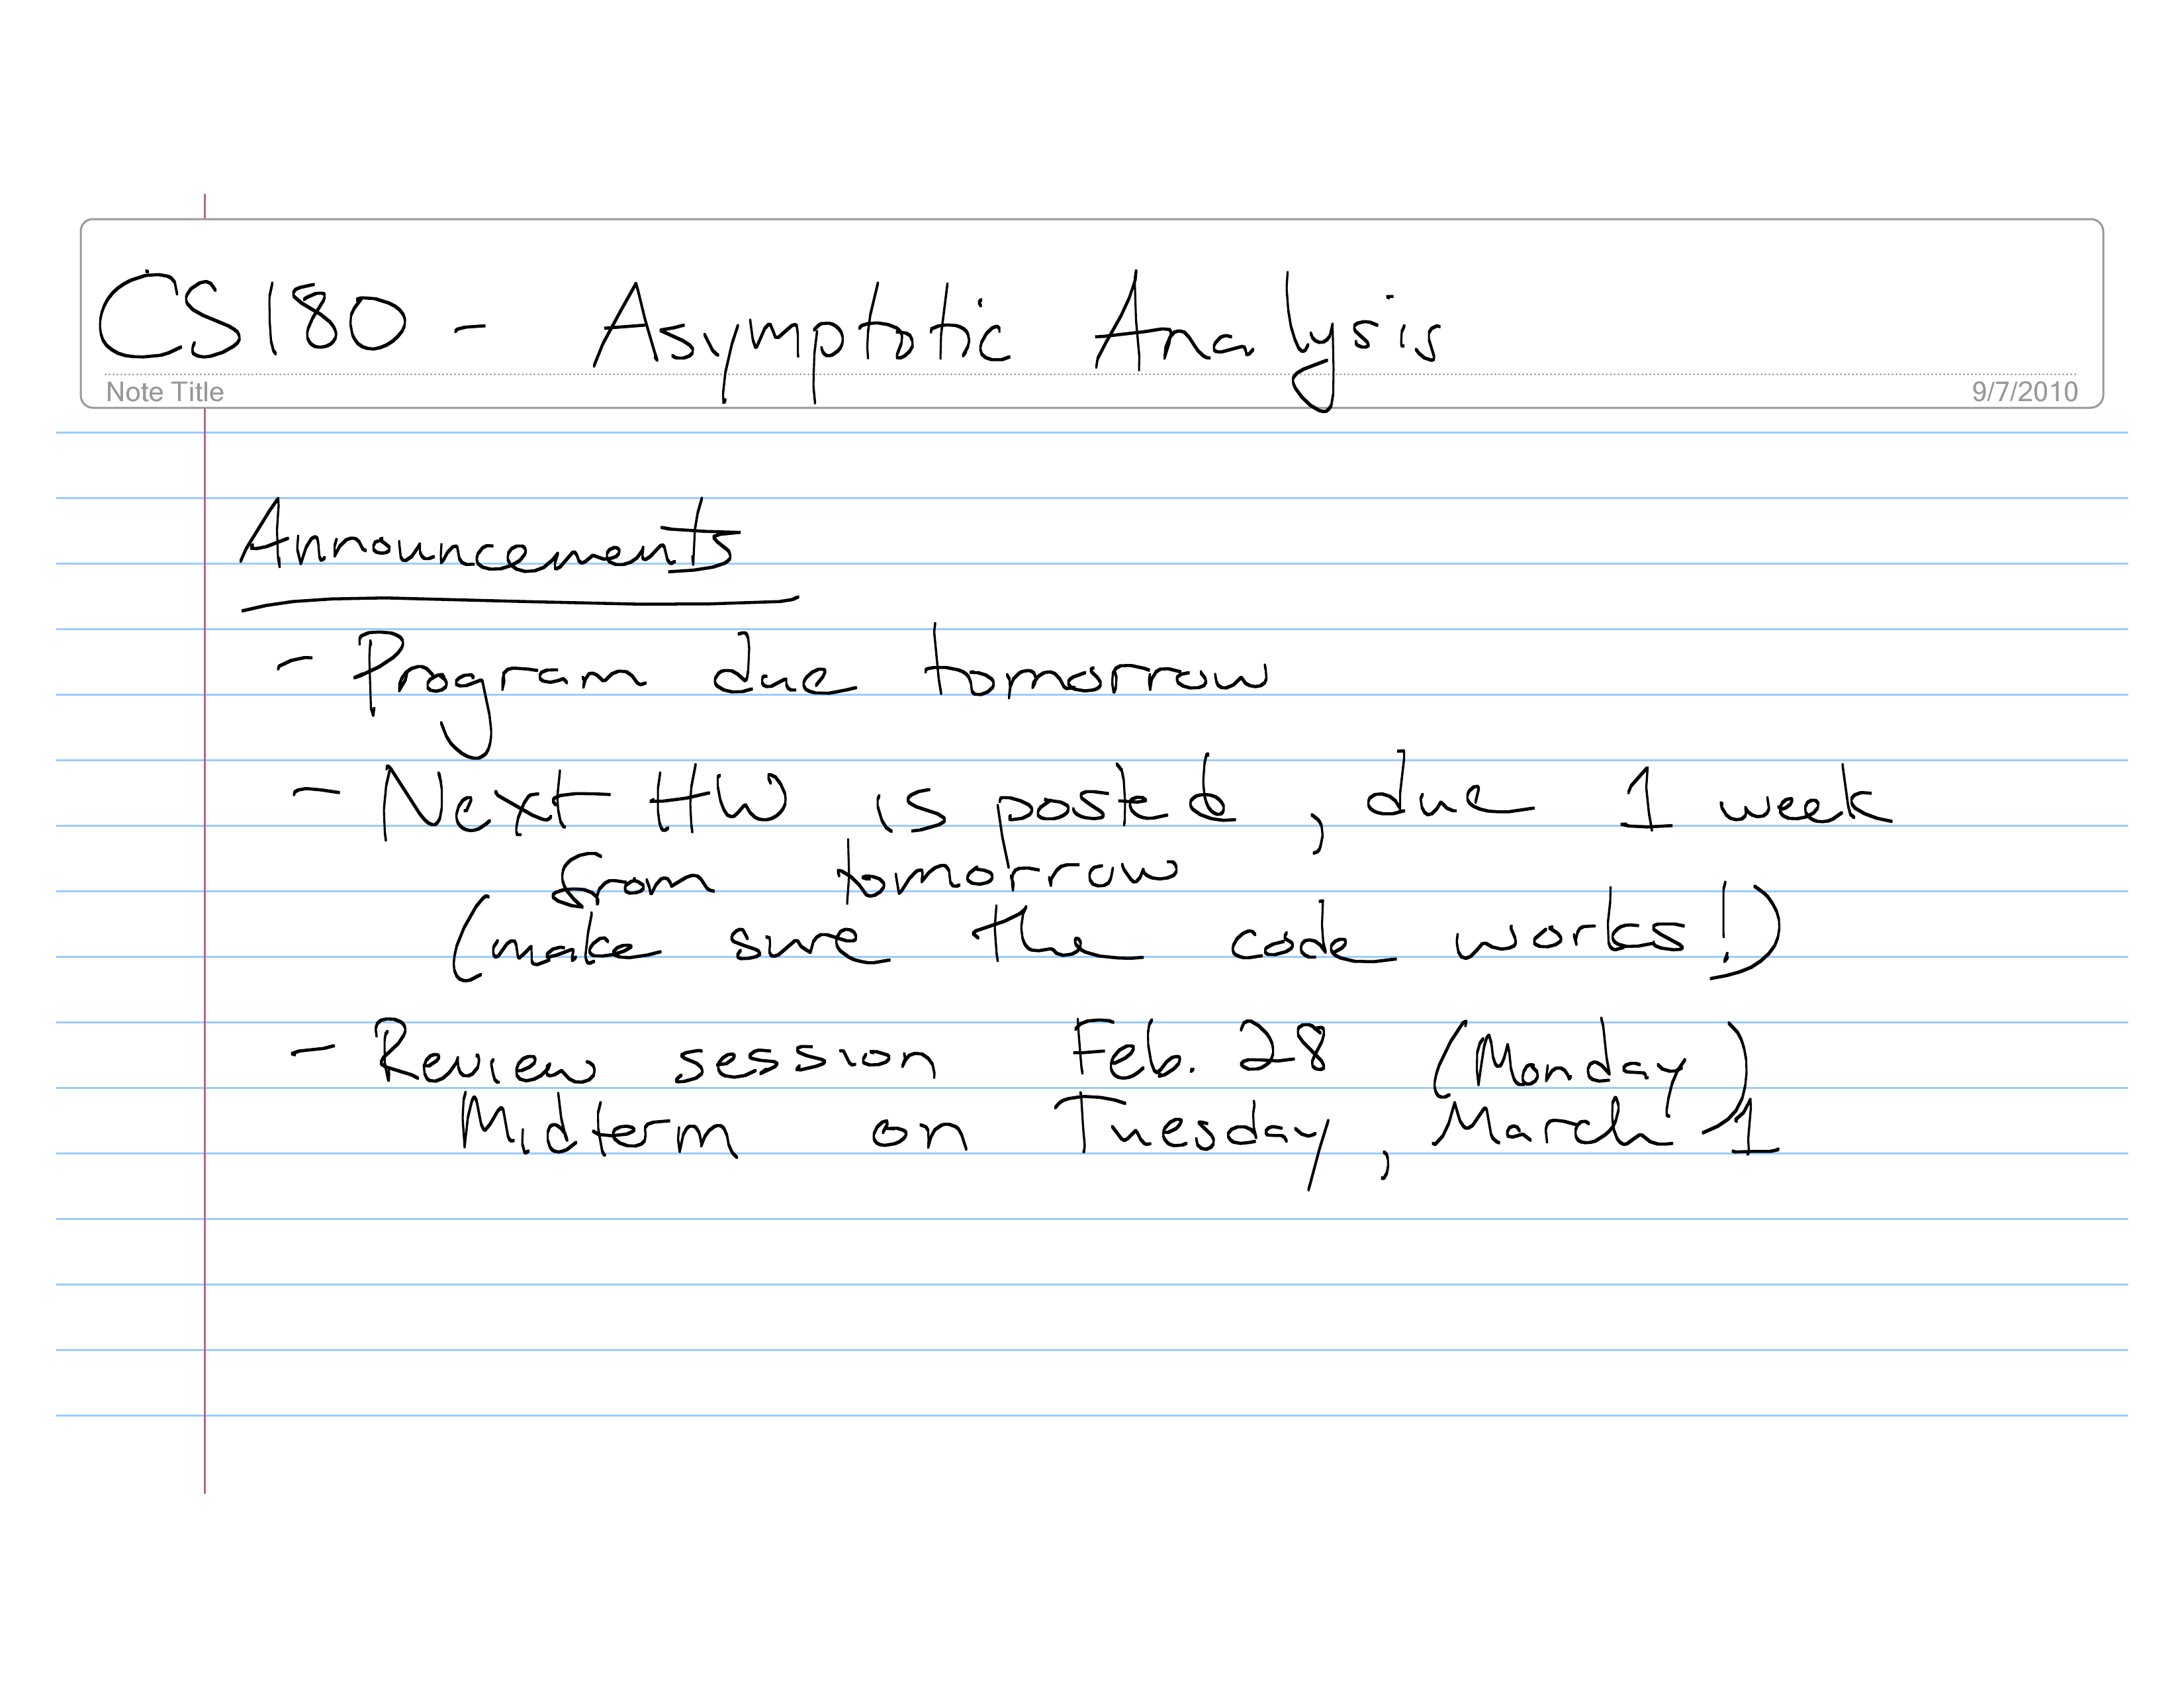 CS180 - Asymptotic Analysis
Note Title 9/7/2010
Announcements
- Program due tomorrow
- Next HW is posted, due 1 week
from tomorrow
(make sure the code works!)
- Review session Feb. 28 (Monday)
Midterm on Tuesday, March 1